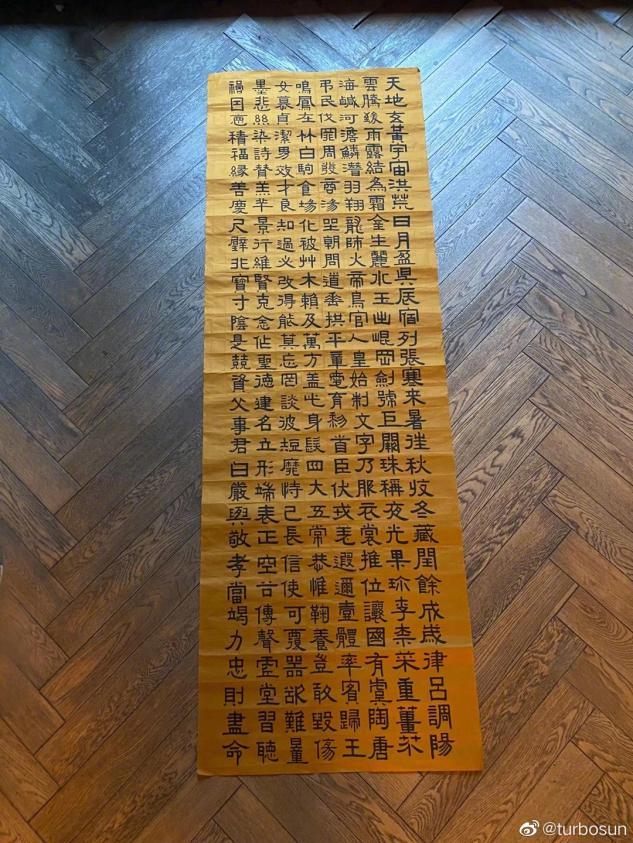 天地玄黃宇宙洪荒日月盈昃辰宿列張寒來暑往秋收冬藏閏餘成歲律呂調陽
雲騰致雨露結為霜金生麗水玉出崐岡劍號巨闕珠稱夜光果珍李柰菜重薑芥
海鹹河澹鱗潛羽翔龍師火帝鳥官人皇始制文字乃服衣裳推位讓國有虞陶唐
弔民伐罪周發商湯坐朝問道垂拱平章愛育黎首臣伏戎羌遐邇壹體率賓歸王
鳴鳳在林白駒食場化被艸木賴及萬方蓋此身髮四大五常恭惟鞠養豈敢毀傷
女慕貞潔男效才良知過必改得能莫忘罔談彼短靡恃己長信使可覆器欲難量
墨悲絲染詩贊羔羊景行維賢克念作聖德建名立形端表正空谷傳聲虛堂習聽
禍因惡積福緣善慶尺璧非寶寸陰是競資父事君曰嚴與敬孝當竭力忠則盡命
@turbosun